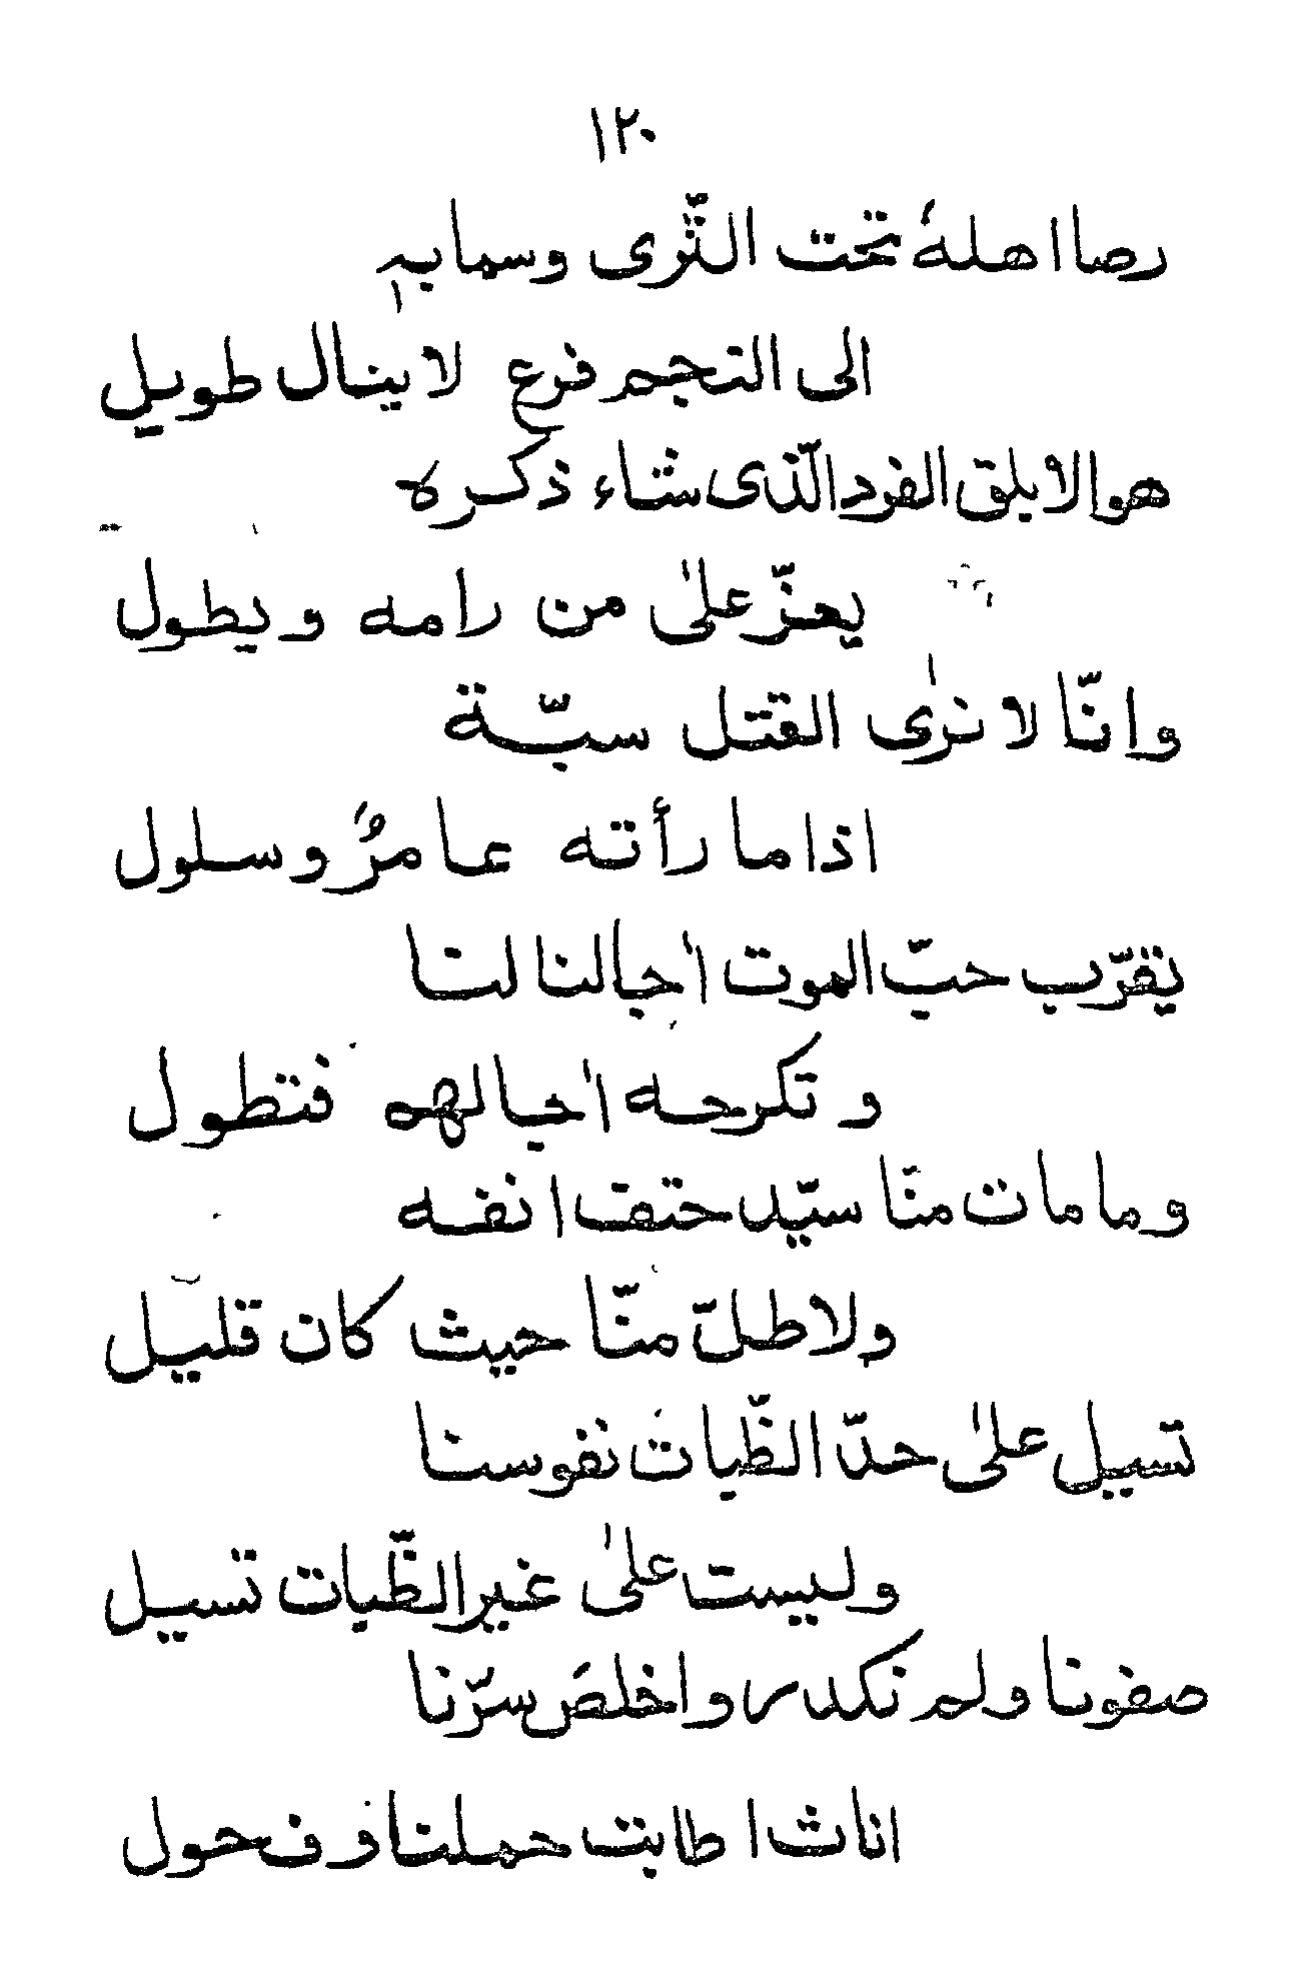 ١٢٠
رصا اهلهٗ تحت الثّرى وسما بہٖ
الى النجم فرع لا ينال طويل
هوالابلق الفرد الّذى شاء ذكره
يعزّ علىٰ من رامه ويطول
وانّا لا نرىٰ القتل سبّة
اذا ما رأته عامرٌ وسلول
يقرّب حبّ الموت اٰجالنا لنا
وتكرهه اٰجالهم فتطول
وما مات منّا سيّد حتف انفه
ولا طلّ منّا حيث كان قليل
تسيل علىٰ حدّ الظّبات نفوسنا
وليست علىٰ غير الظّبات تسيل
صفونا ولم نكدر واخلصَ سرّنا
اناث اطابت حملنا و فحول